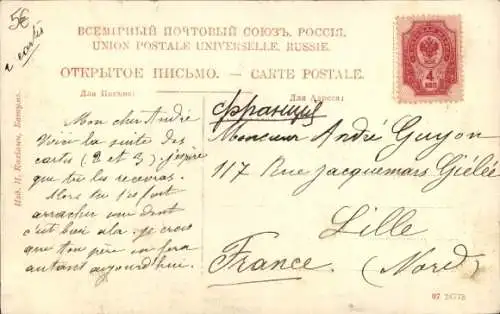 5€
2 carté
ВСЕМІРНЫЙ ПОЧТОВЫЙ СОЮЗЪ. РОССІЯ.
UNION POSTALE UNIVERSELLE. RUSSIE.
ОТКРЫТОЕ ПИСЬМО. — CARTE POSTALE.
Для Письма:
Для Адреса:
4
КОП
Mon cher André
Voici la suite des
cartes (2 et 3) j'espère
que tu les recevras.
arracher une dent
c'est bien je crois
que ton père en fera
autant aujourd'hui.
франція
Monsieur André Guyon
117 Rue Jacquemars Giélée
Lille
France. (Nord)
Изд. И.
07 24778